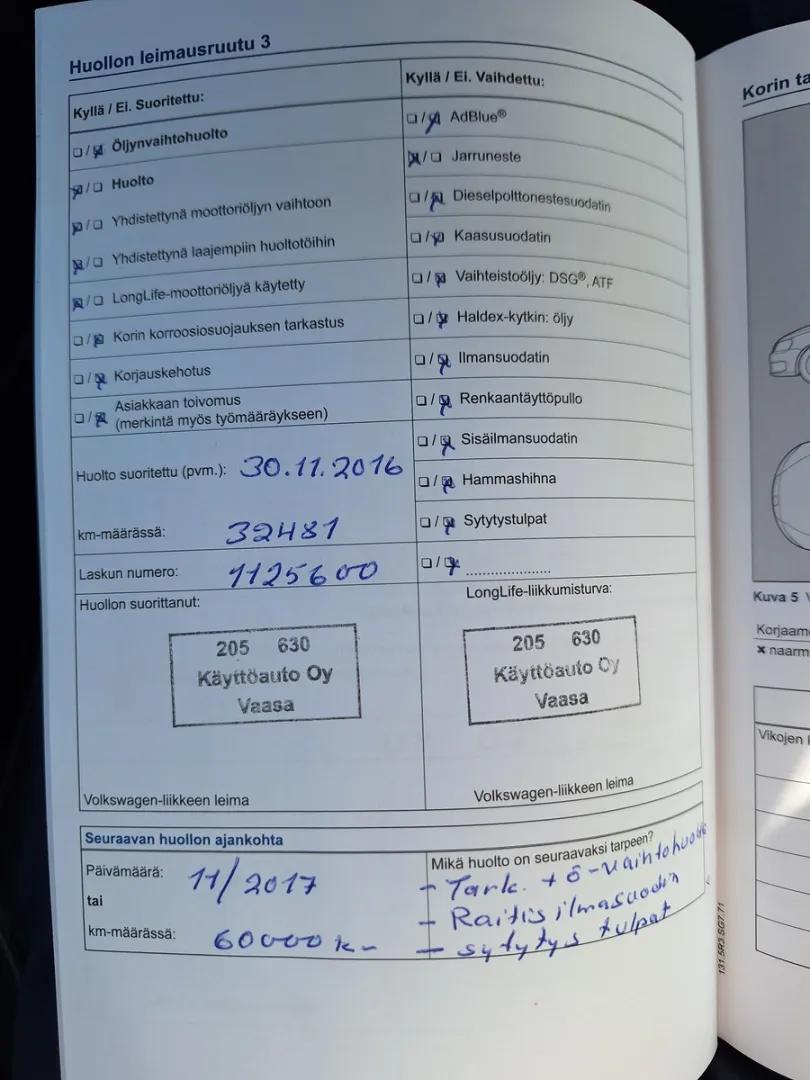 Huollon leimausruutu 3
Kyllä / Ei. Suoritettu:
☐/☒ Öljynvaihtohuolto
☒/☐ Huolto
☒/☐ Yhdistettynä moottoriöljyn vaihtoon
☒/☐ Yhdistettynä laajempiin huoltotöihin
☒/☐ LongLife-moottoriöljyä käytetty
☐/☒ Korin korroosiosuojauksen tarkastus
☐/☒ Korjauskehotus
☐/☒ Asiakkaan toivomus
(merkintä myös työmääräykseen)
Huolto suoritettu (pvm.): 30.11.2016
km-määrässä: 32481
Laskun numero: 1125600
Huollon suorittanut:
205 630
Käyttöauto Oy
Vaasa
Volkswagen-liikkeen leima
Kyllä / Ei. Vaihdettu:
☐/☒ AdBlue®
☒/☐ Jarruneste
☐/☒ Dieselpolttonestesuodatin
☐/☒ Kaasusuodatin
☐/☒ Vaihteistoöljy: DSG®, ATF
☐/☒ Haldex-kytkin: öljy
☐/☒ Ilmansuodatin
☐/☒ Renkaantäyttöpullo
☐/☒ Sisäilmansuodatin
☐/☒ Hammashihna
☐/☒ Sytytystulpat
☐/☒ ....................
LongLife-liikkumisturva:
205 630
Käyttöauto Oy
Vaasa
Volkswagen-liikkeen leima
Seuraavan huollon ajankohta
Päivämäärä: 11/2017
tai
km-määrässä: 60000 km
Mikä huolto on seuraavaksi tarpeen?
- Tark. + ö-vaihtohuolto
- Raitisilmasuodin
- sytytys tulpat
131.5R3.SG7.71
Korin
Kuva 5
✖
Vikojen